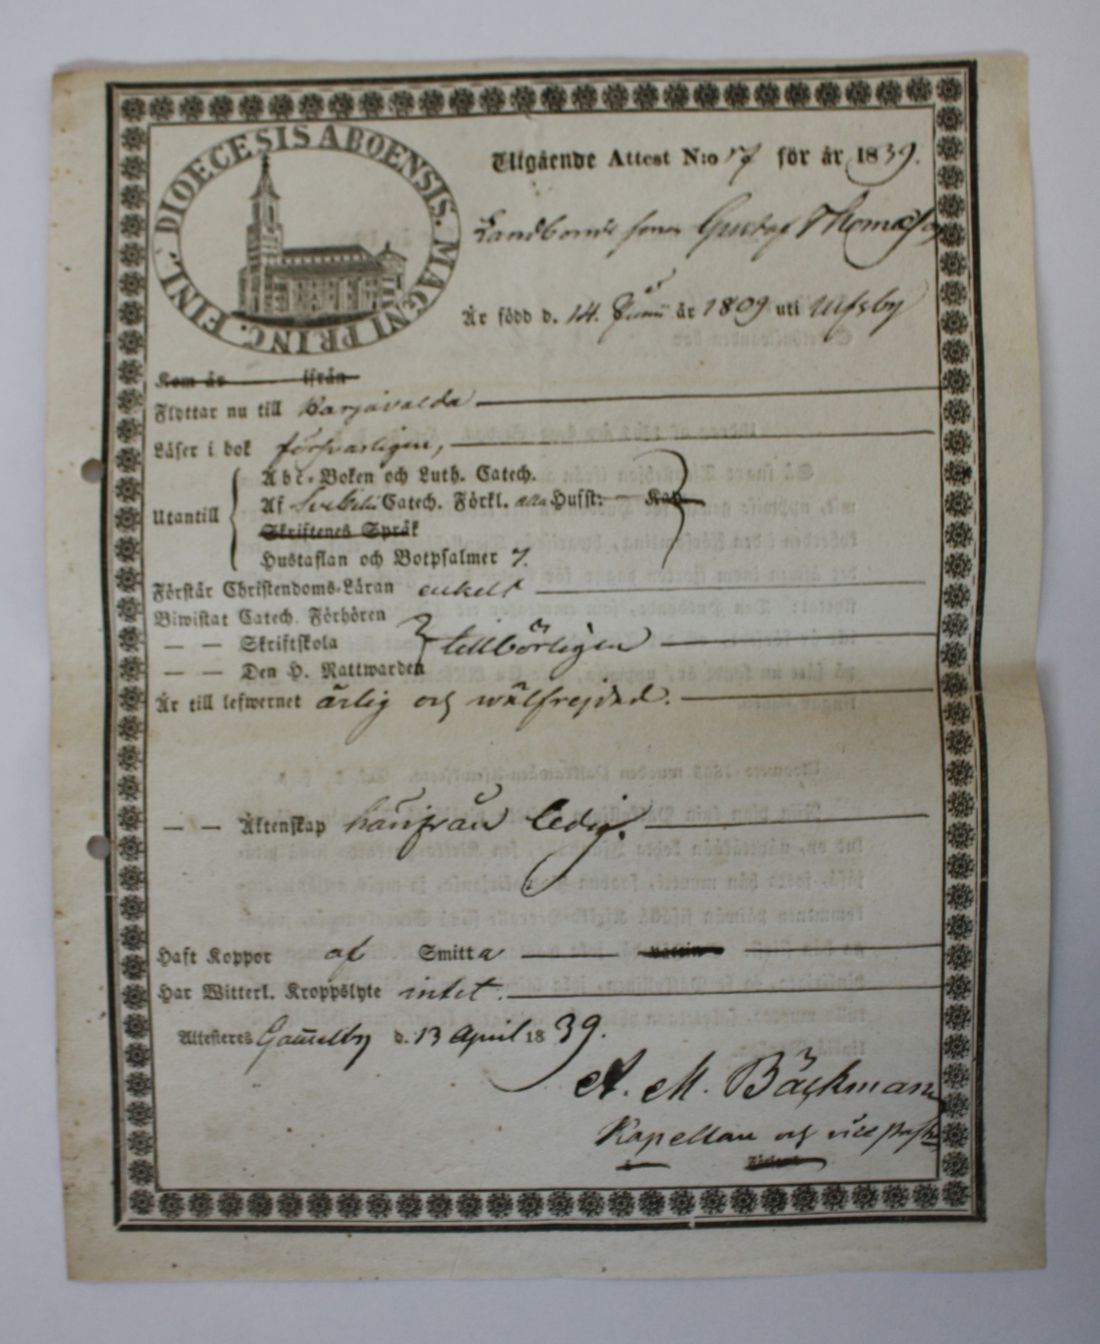 DIOECESIS ABOENSIS. MAGNI PRINC. FINL.
Utgående Attest N:o 17 för år 1839.
Landbonde sonen Gustaf Thomasson
Är född d. 14. Junii år 1809 uti Ulfsby
Kom år ifrån
Flyttar nu till Karjavalda
Läser i bok försvarligen,
Utantill
Abc-Boken och Luth. Catech.
Af Svebelii Catech. Förkl. alla Husst: Kap
Skriftenes Språk
Hustaflan och Botpsalmer 7.
Förstår Christendoms-Läran enkelt
Biwistat Catech. Förhören
— — Skriftskola tillbörligen
— — Den H. Nattwarden
Är till lefwernet ärlig och wälfrejdad.
— — Äktenskap härifrån ledig.
Haft Koppor af Smitta vaccin
Har Witterl. Kroppslyte intet.
Attesteres Gammelby d. 13 April 1839.
A. M. Bäckman
Kapellan och vice past: